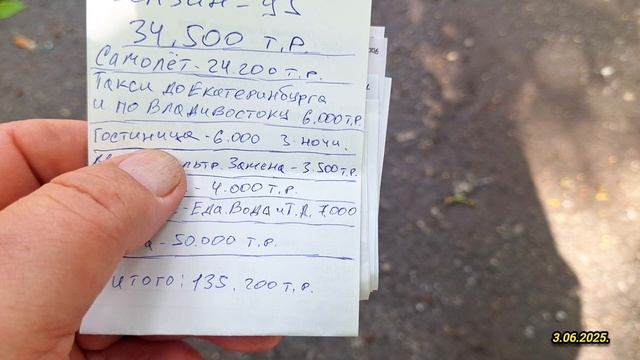 34.500 т.р.
Самолёт - 24.200 т.р.
Такси до Екатеринбурга
и по Владивостоку 6.000 т.р.
Гостиница - 6.000 3 ночи.
Замена - 3.500 т.р.
- 4.000 т.р.
- Еда. Вода и т.д. 7.000
- 50.000 т.р.
итого: 135.200 т.р.
3.06.2025.